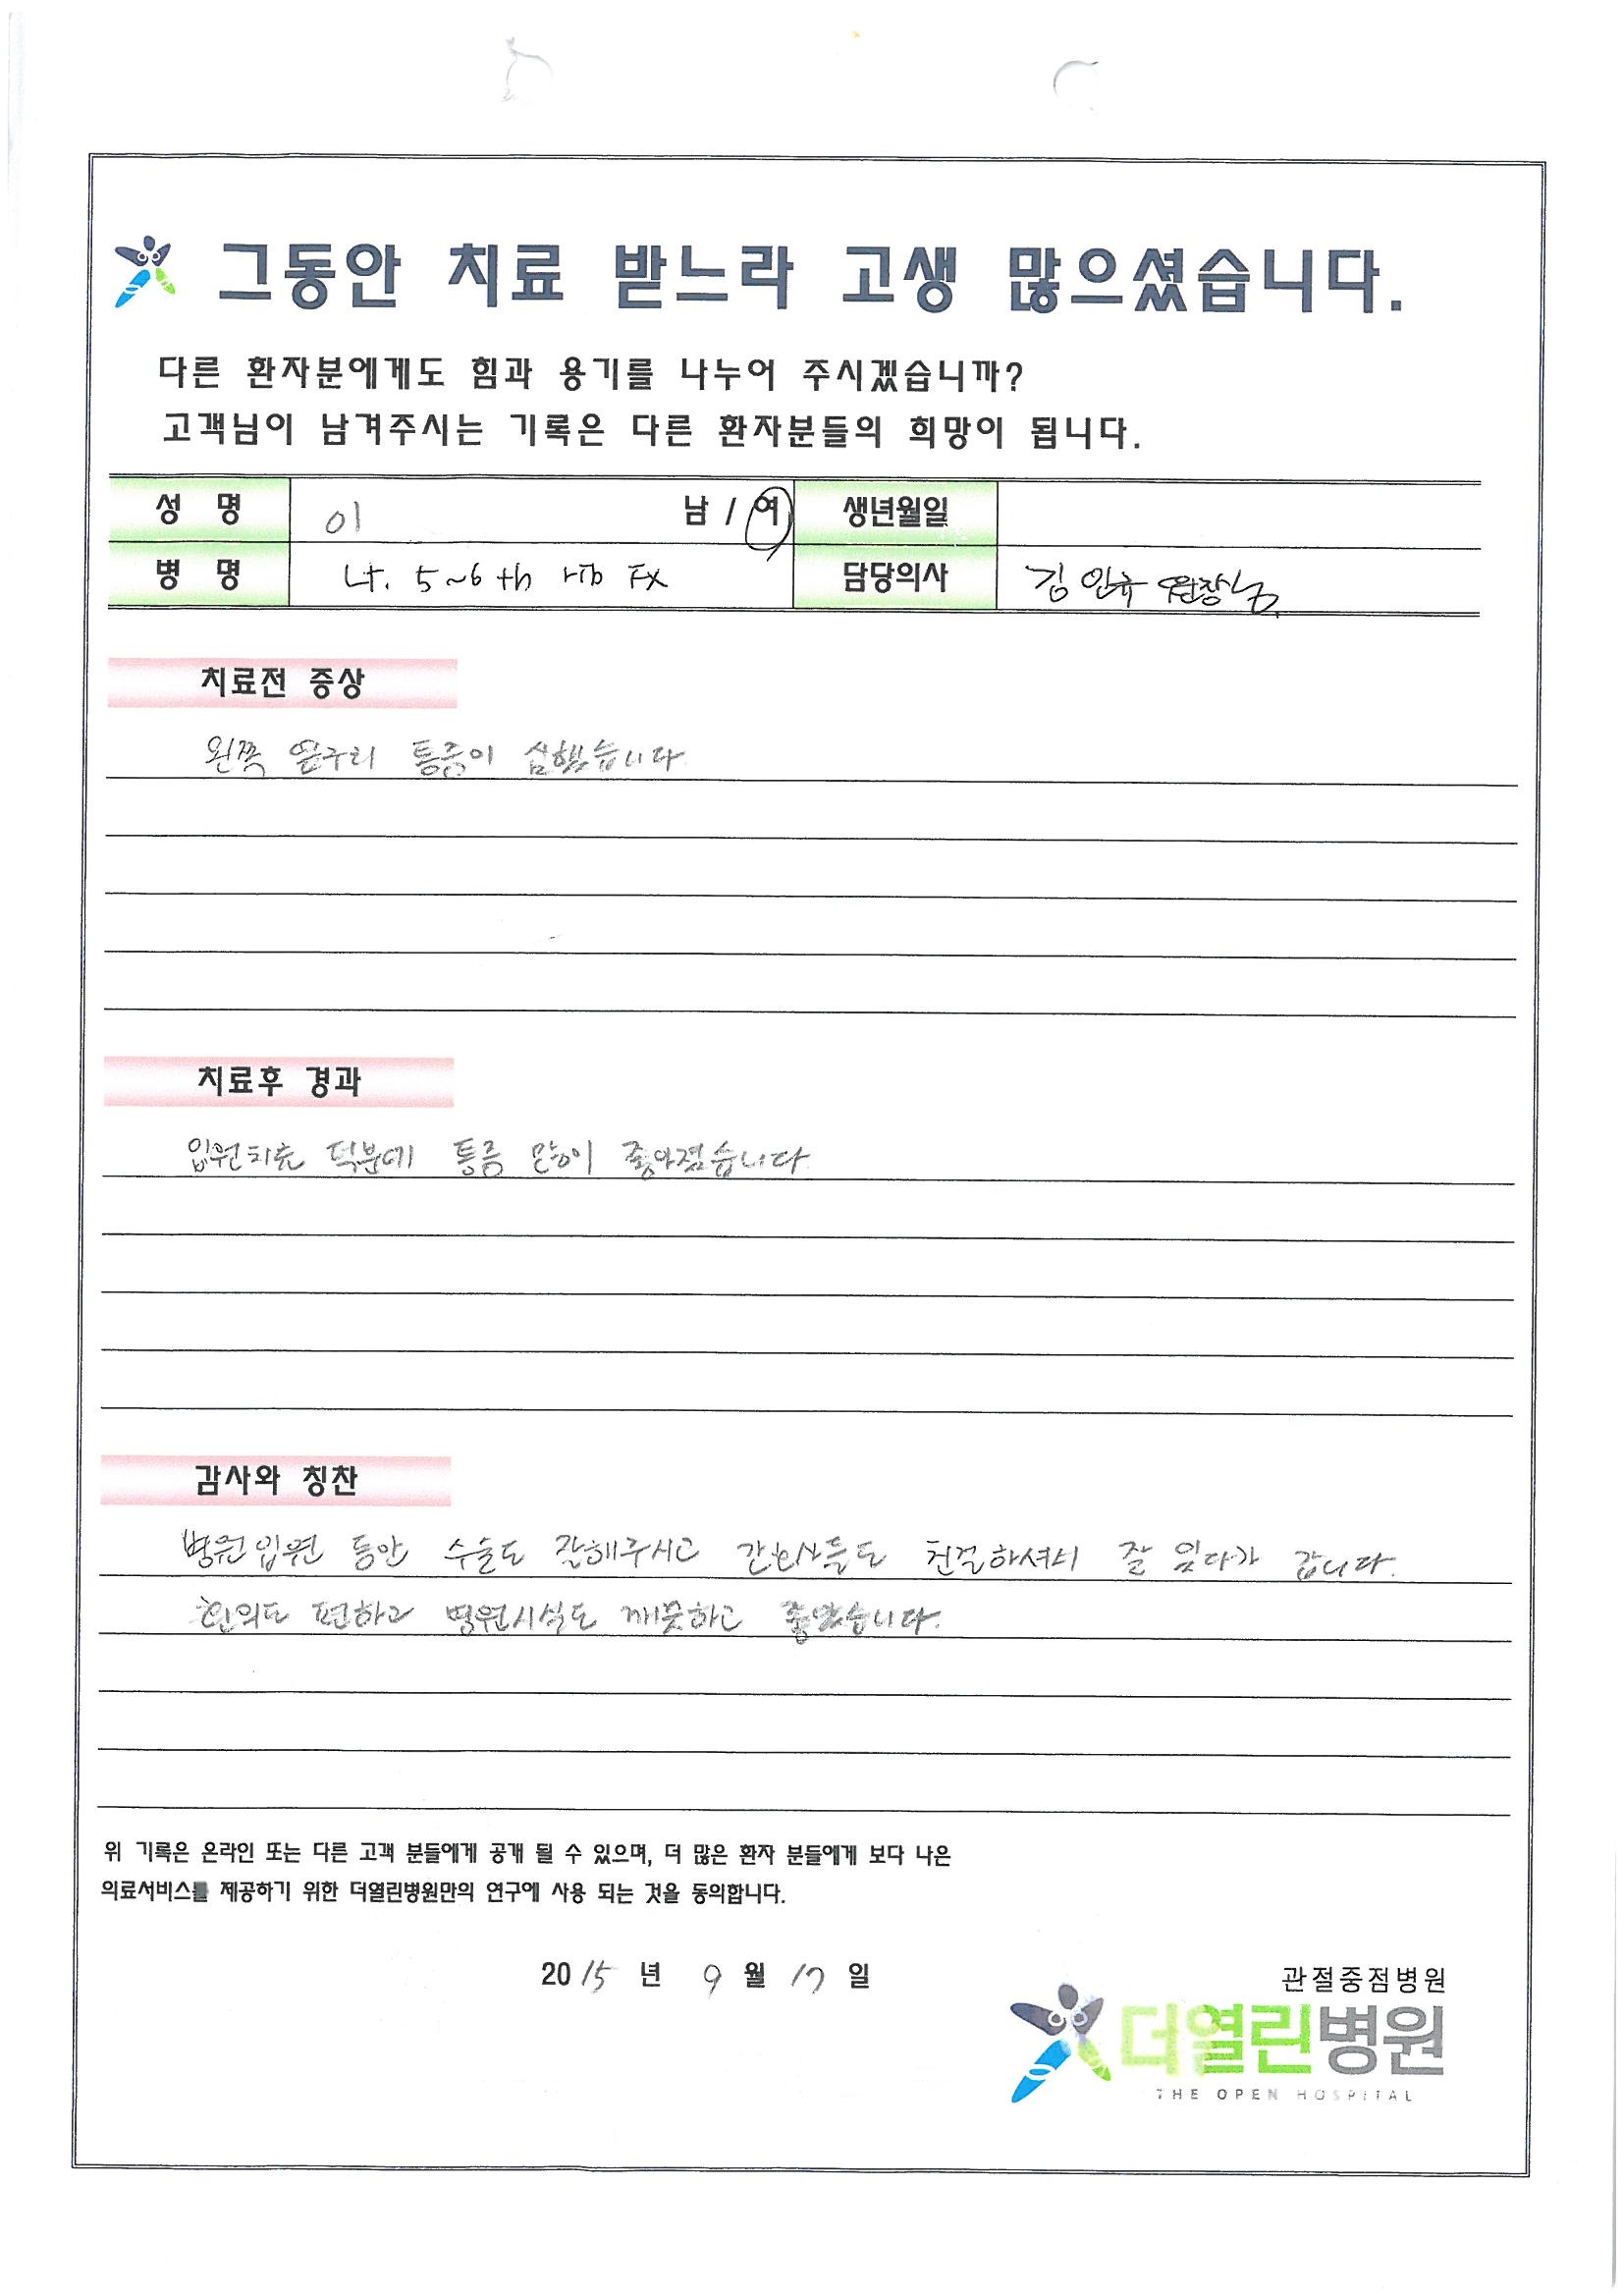 그동안 치료 받느라 고생 많으셨습니다.
다른 환자분에게도 힘과 용기를 나누어 주시겠습니까?
고객님이 남겨주시는 기록은 다른 환자분들의 희망이 됩니다.
성 명 이 남 / 여 생년월일
병 명 Lt. 5~6th rib Fx 담당의사 김인규 원장님
치료전 증상
왼쪽 옆구리 통증이 심했습니다
치료후 경과
입원치료 덕분에 통증 많이 좋아졌습니다
감사와 칭찬
병원입원 동안 수술도 잘해주시고 간호사들도 친절하셔서 잘 있다가 갑니다.
편하고 병원시설도 깨끗하고 좋았습니다.
위 기록은 온라인 또는 다른 고객 분들에게 공개 될 수 있으며, 더 많은 환자 분들에게 보다 나은
의료서비스를 제공하기 위한 더열린병원만의 연구에 사용 되는 것을 동의합니다.
2015 년 9 월 17 일
관절중점병원
더열린병원
THE OPEN HOSPITAL